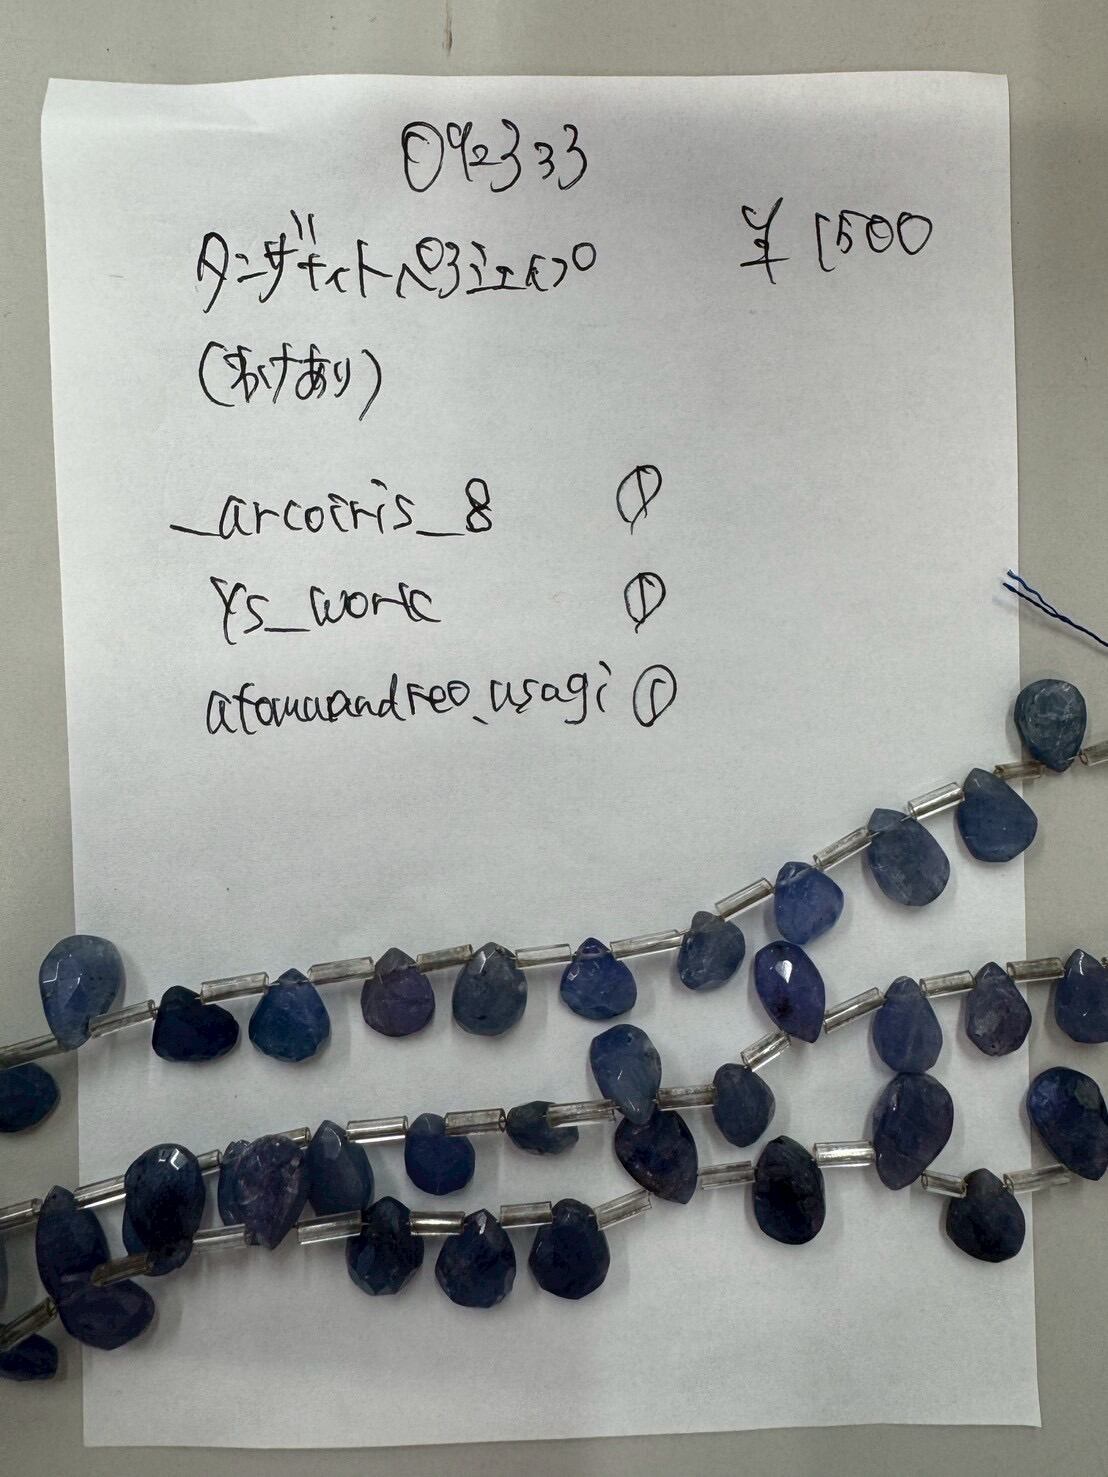 092333
タンザナイトペアシェイプ ¥1500
(わけあり)
_arcoiris_8 ①
ys_work ①
atomuandreo_usagi ①